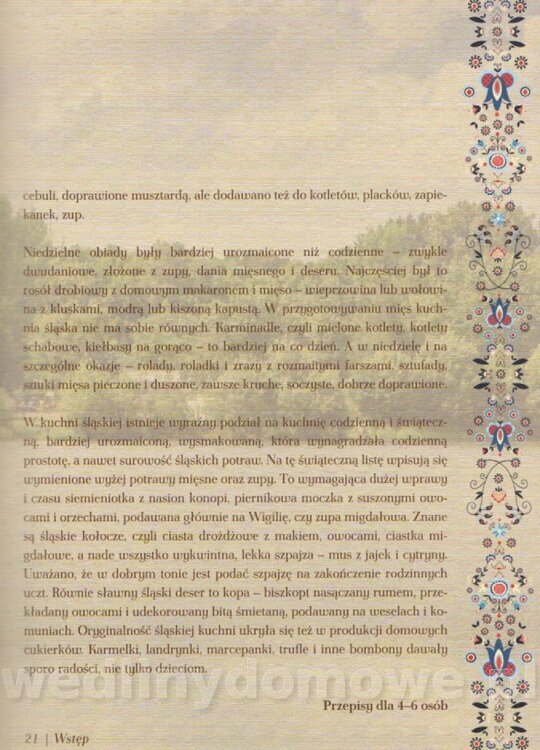 cebuli, doprawione musztardą, ale dodawano też do kotletów, placków, zapie-
kanek, zup.
Niedzielne obiady były bardziej urozmaicone niż codzienne – zwykle
dwudaniowe, złożone z zupy, dania mięsnego i deseru. Najczęściej był to
rosół drobiowy z domowym makaronem i mięso – wieprzowina lub wołowi-
na z kluskami, modrą lub kiszoną kapustą. W przygotowywaniu mięs kuch-
nia śląska nie ma sobie równych. Karminadle, czyli mielone kotlety, kotlety
schabowe, kiełbasy na gorąco – to bardziej na co dzień. A w niedzielę i na
szczególne okazje – rolady, roladki i zrazy z rozmaitymi farszami, sztufady,
sztuki mięsa pieczone i duszone, zawsze kruche, soczyste, dobrze doprawione.
W kuchni śląskiej istnieje wyraźny podział na kuchnię codzienną i świątecz-
ną, bardziej urozmaiconą, wysmakowaną, która wynagradzała codzienną
prostotę, a nawet surowość śląskich potraw. Na tę świąteczną listę wpisują się
wymienione wyżej potrawy mięsne oraz zupy. To wymagająca dużej wprawy
i czasu siemieniotka z nasion konopi, piernikowa moczka z suszonymi owo-
cami i orzechami, podawana głównie na Wigilię, czy zupa migdałowa. Znane
są śląskie kołocze, czyli ciasta drożdżowe z makiem, owocami, ciastka mi-
gdałowe, a nade wszystko wykwintna, lekka szpajza – mus z jajek i cytryny.
Uważano, że w dobrym tonie jest podać szpajzę na zakończenie rodzinnych
uczt. Równie sławny śląski deser to kopa – biszkopt nasączany rumem, prze-
kładany owocami i udekorowany bitą śmietaną, podawany na weselach i ko-
muniach. Oryginalność śląskiej kuchni ukryła się też w produkcji domowych
cukierków. Karmelki, landrynki, marcepanki, trufle i inne bombony dawały
sporo radości, nie tylko dzieciom.
wedlinydomowe.pl
Przepisy dla 4–6 osób
21 | Wstęp